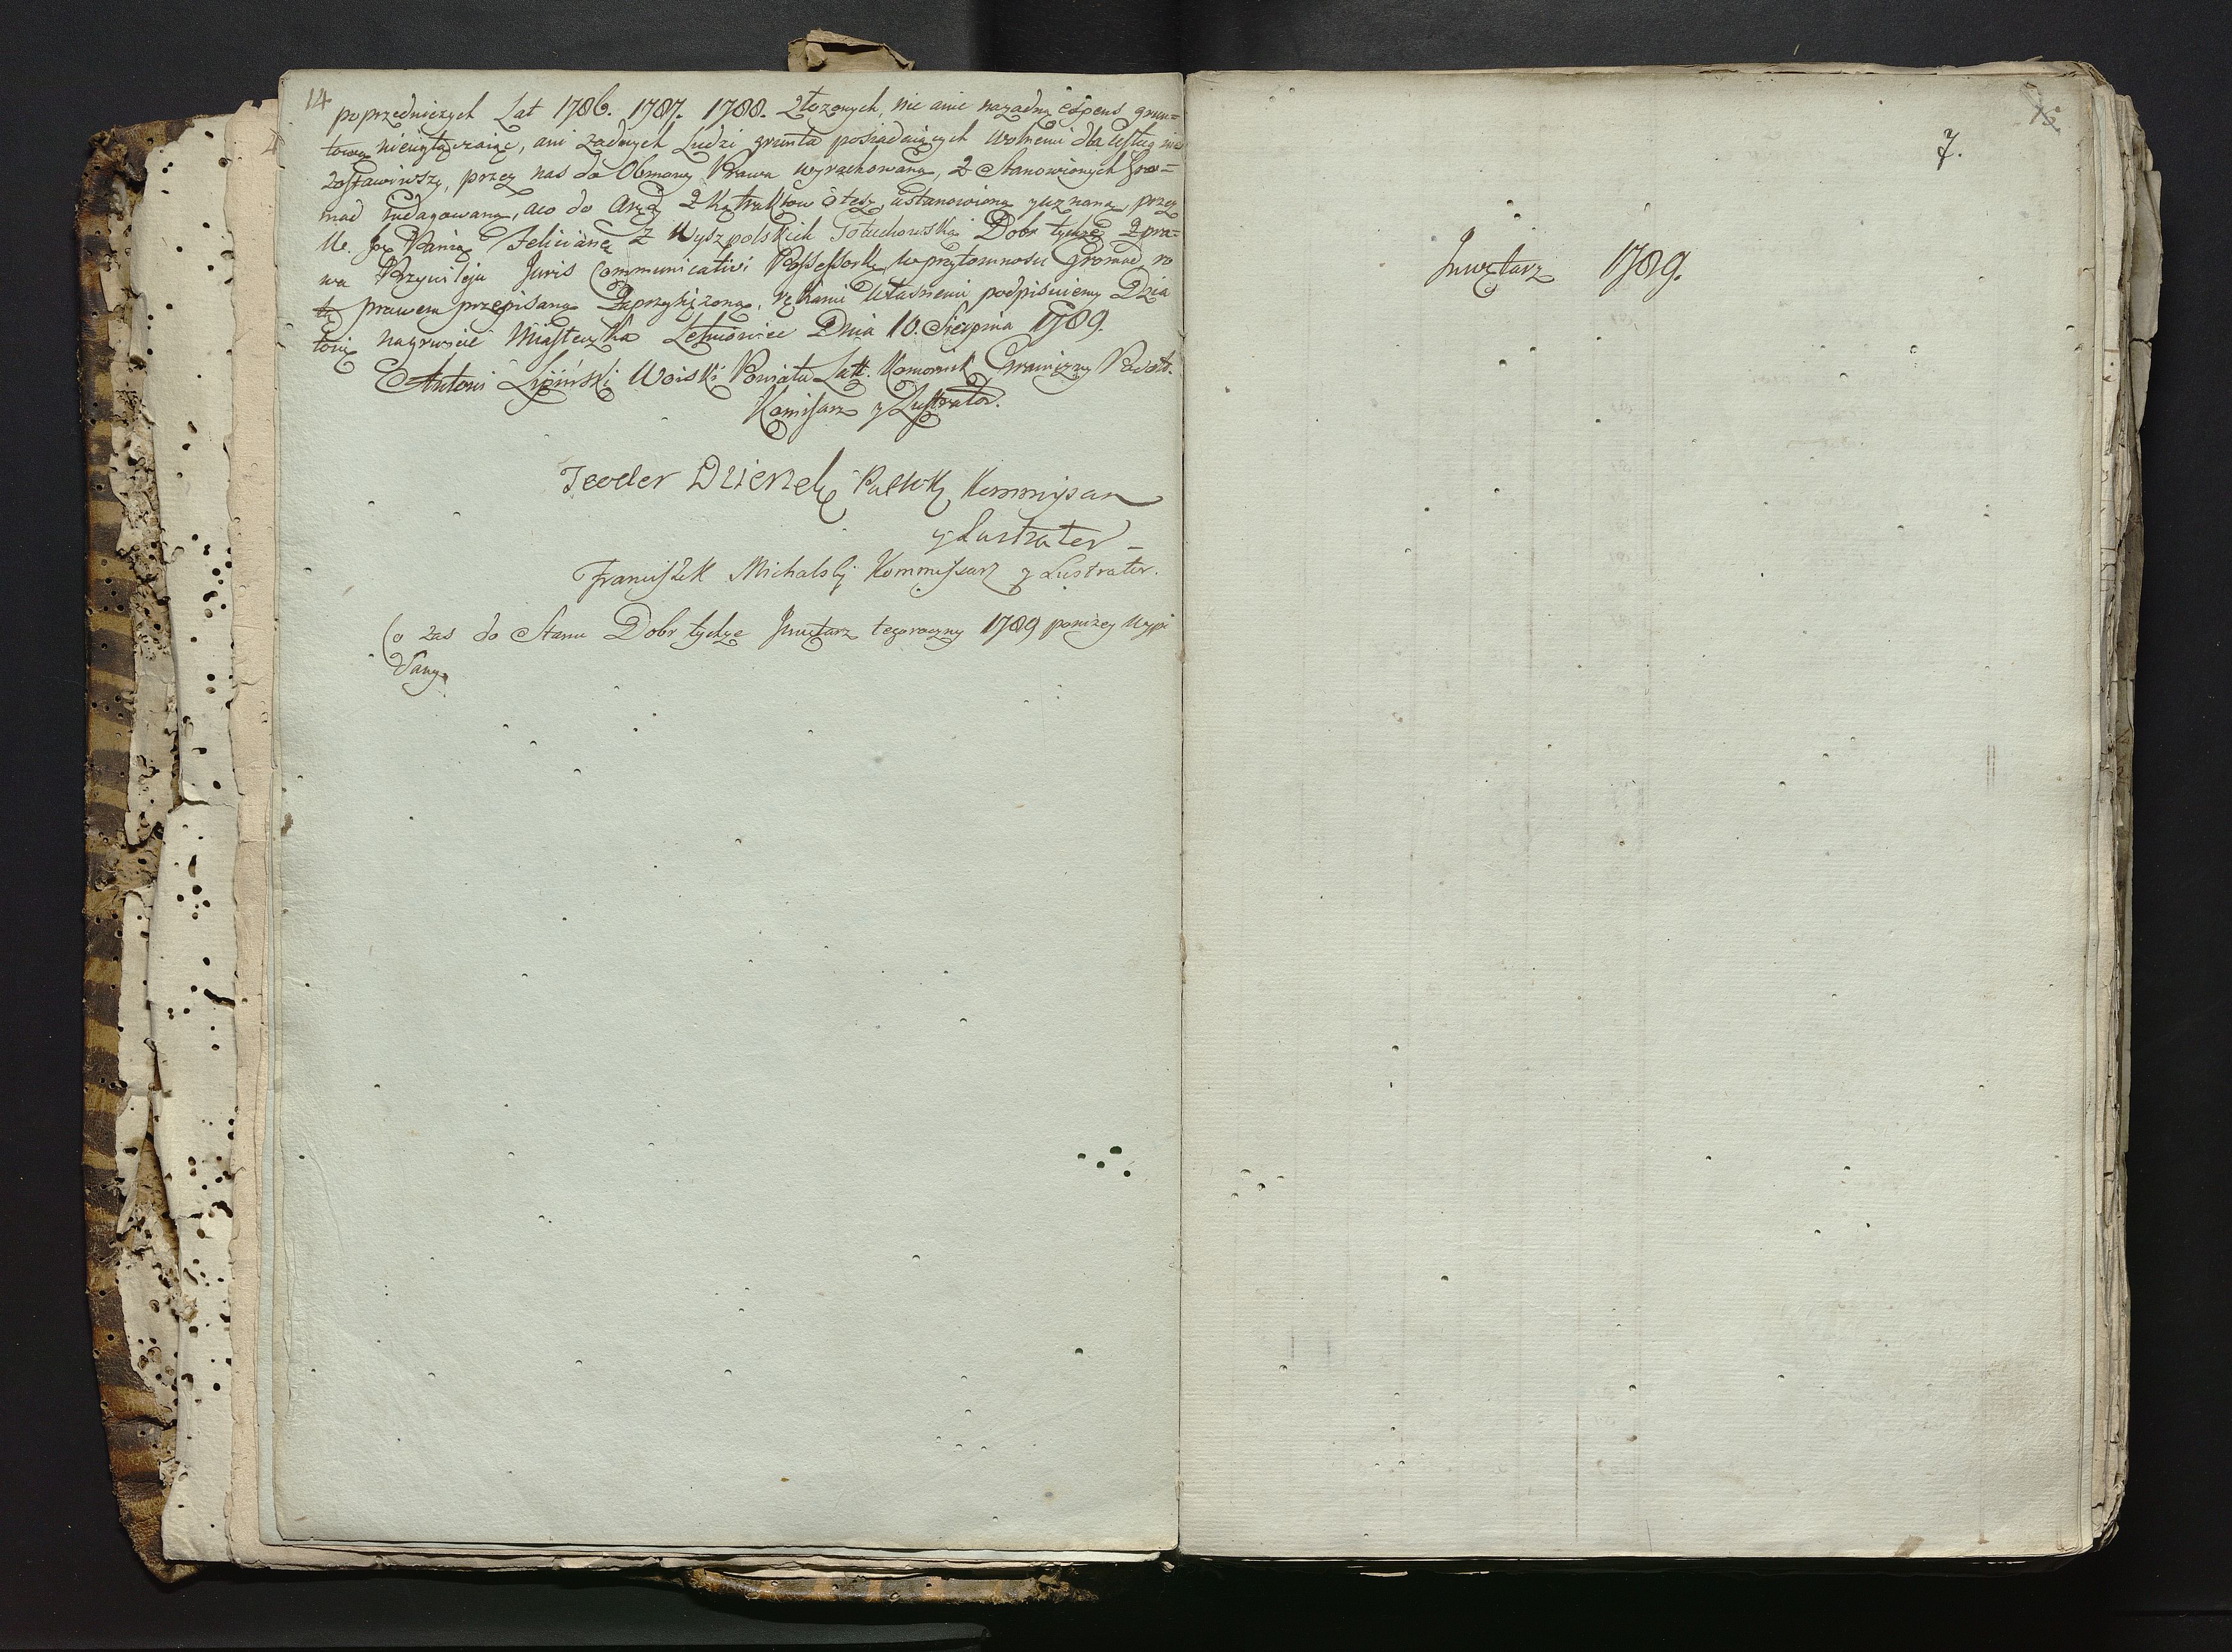 14
poprzedniczych Lat 1786. 1787. 1788. złożonych, nic anie nażadny expens grun=
towy nieuytą, ani żadnych Ludzi grunta posiadaiących wolnemi dla usług nie
zostawiwszy, przez nas do Obmowy Prawa wyrachowaną, z Stanowionych Gro=
mad indagowaną, aco do z kątraktow ustanowioną y uznaną, przez
W. Jey Panią Felicianę z Wyszpolskich Dobr tychże zpra=
wa Przywileju Juris Communicativi Possessorkę, wprzytomnosci Gromad, ro
tę prawem przepisaną zaprzysiężoną, rękami własnemi podpisuiemy Dzia
łosię nagruncie Miasteczka Letniowiec Dnia 10. Sierpnia 1789.
Antoni Woiski Powiatu Łatt. Komornik Graniczny
Komisarz y Lustrator.
Teodor Dzierzek Kommisarz
y Lustrator
Franciszek Michalski Kommissarz y Lustrator.
Co zas do Stanu Dobr tychże Inwętarz tegoroczny 1789 poniżey wypi
sany.
7.
Inwętarz 1789.